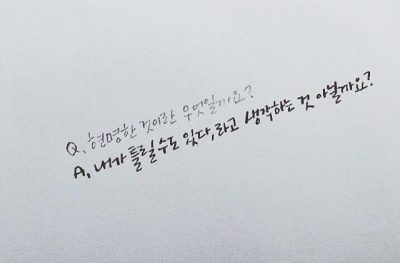 Q. 현명한 것이란 무엇일까요?
A. 내가 틀릴 수도 있다, 라고 생각하는 것 아닐까요?